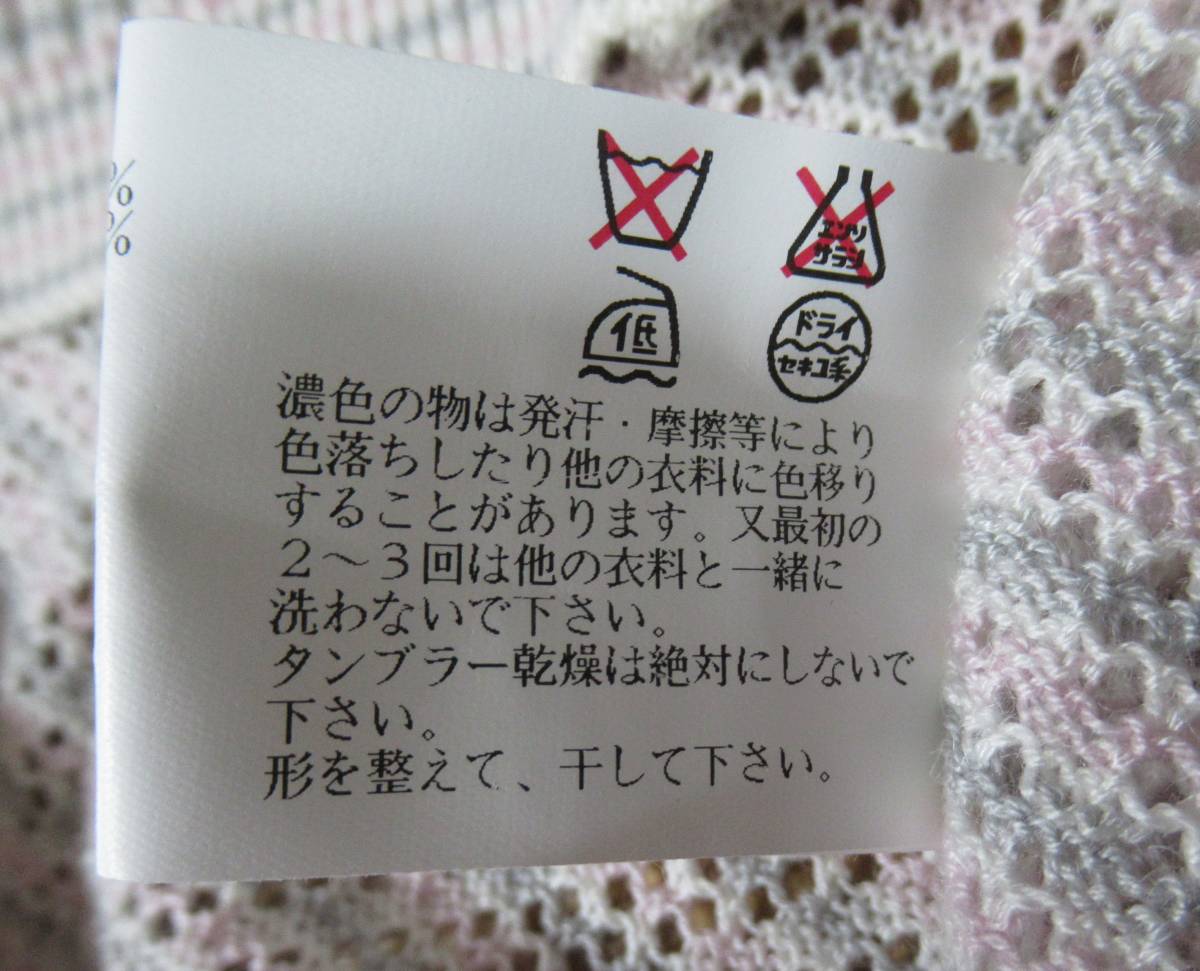 %
%
エンソ
サラシ
低
ドライ
セキユ系
濃色の物は発汗・摩擦等により
色落ちしたり他の衣料に色移り
することがあります。又最初の
2～3回は他の衣料と一緒に
洗わないで下さい。
タンブラー乾燥は絶対にしないで
下さい。
形を整えて、干して下さい。